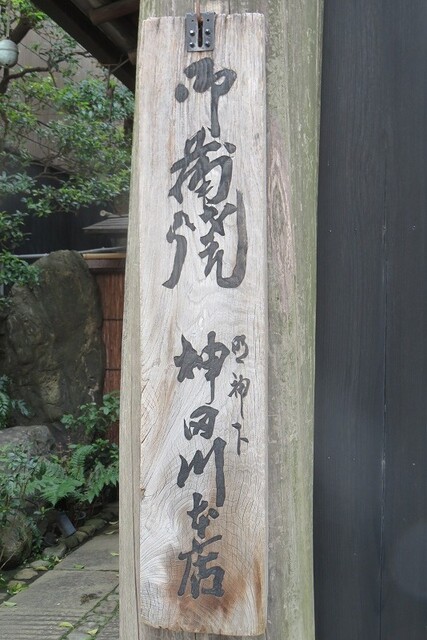 御蒲焼
明神下
神田川本店